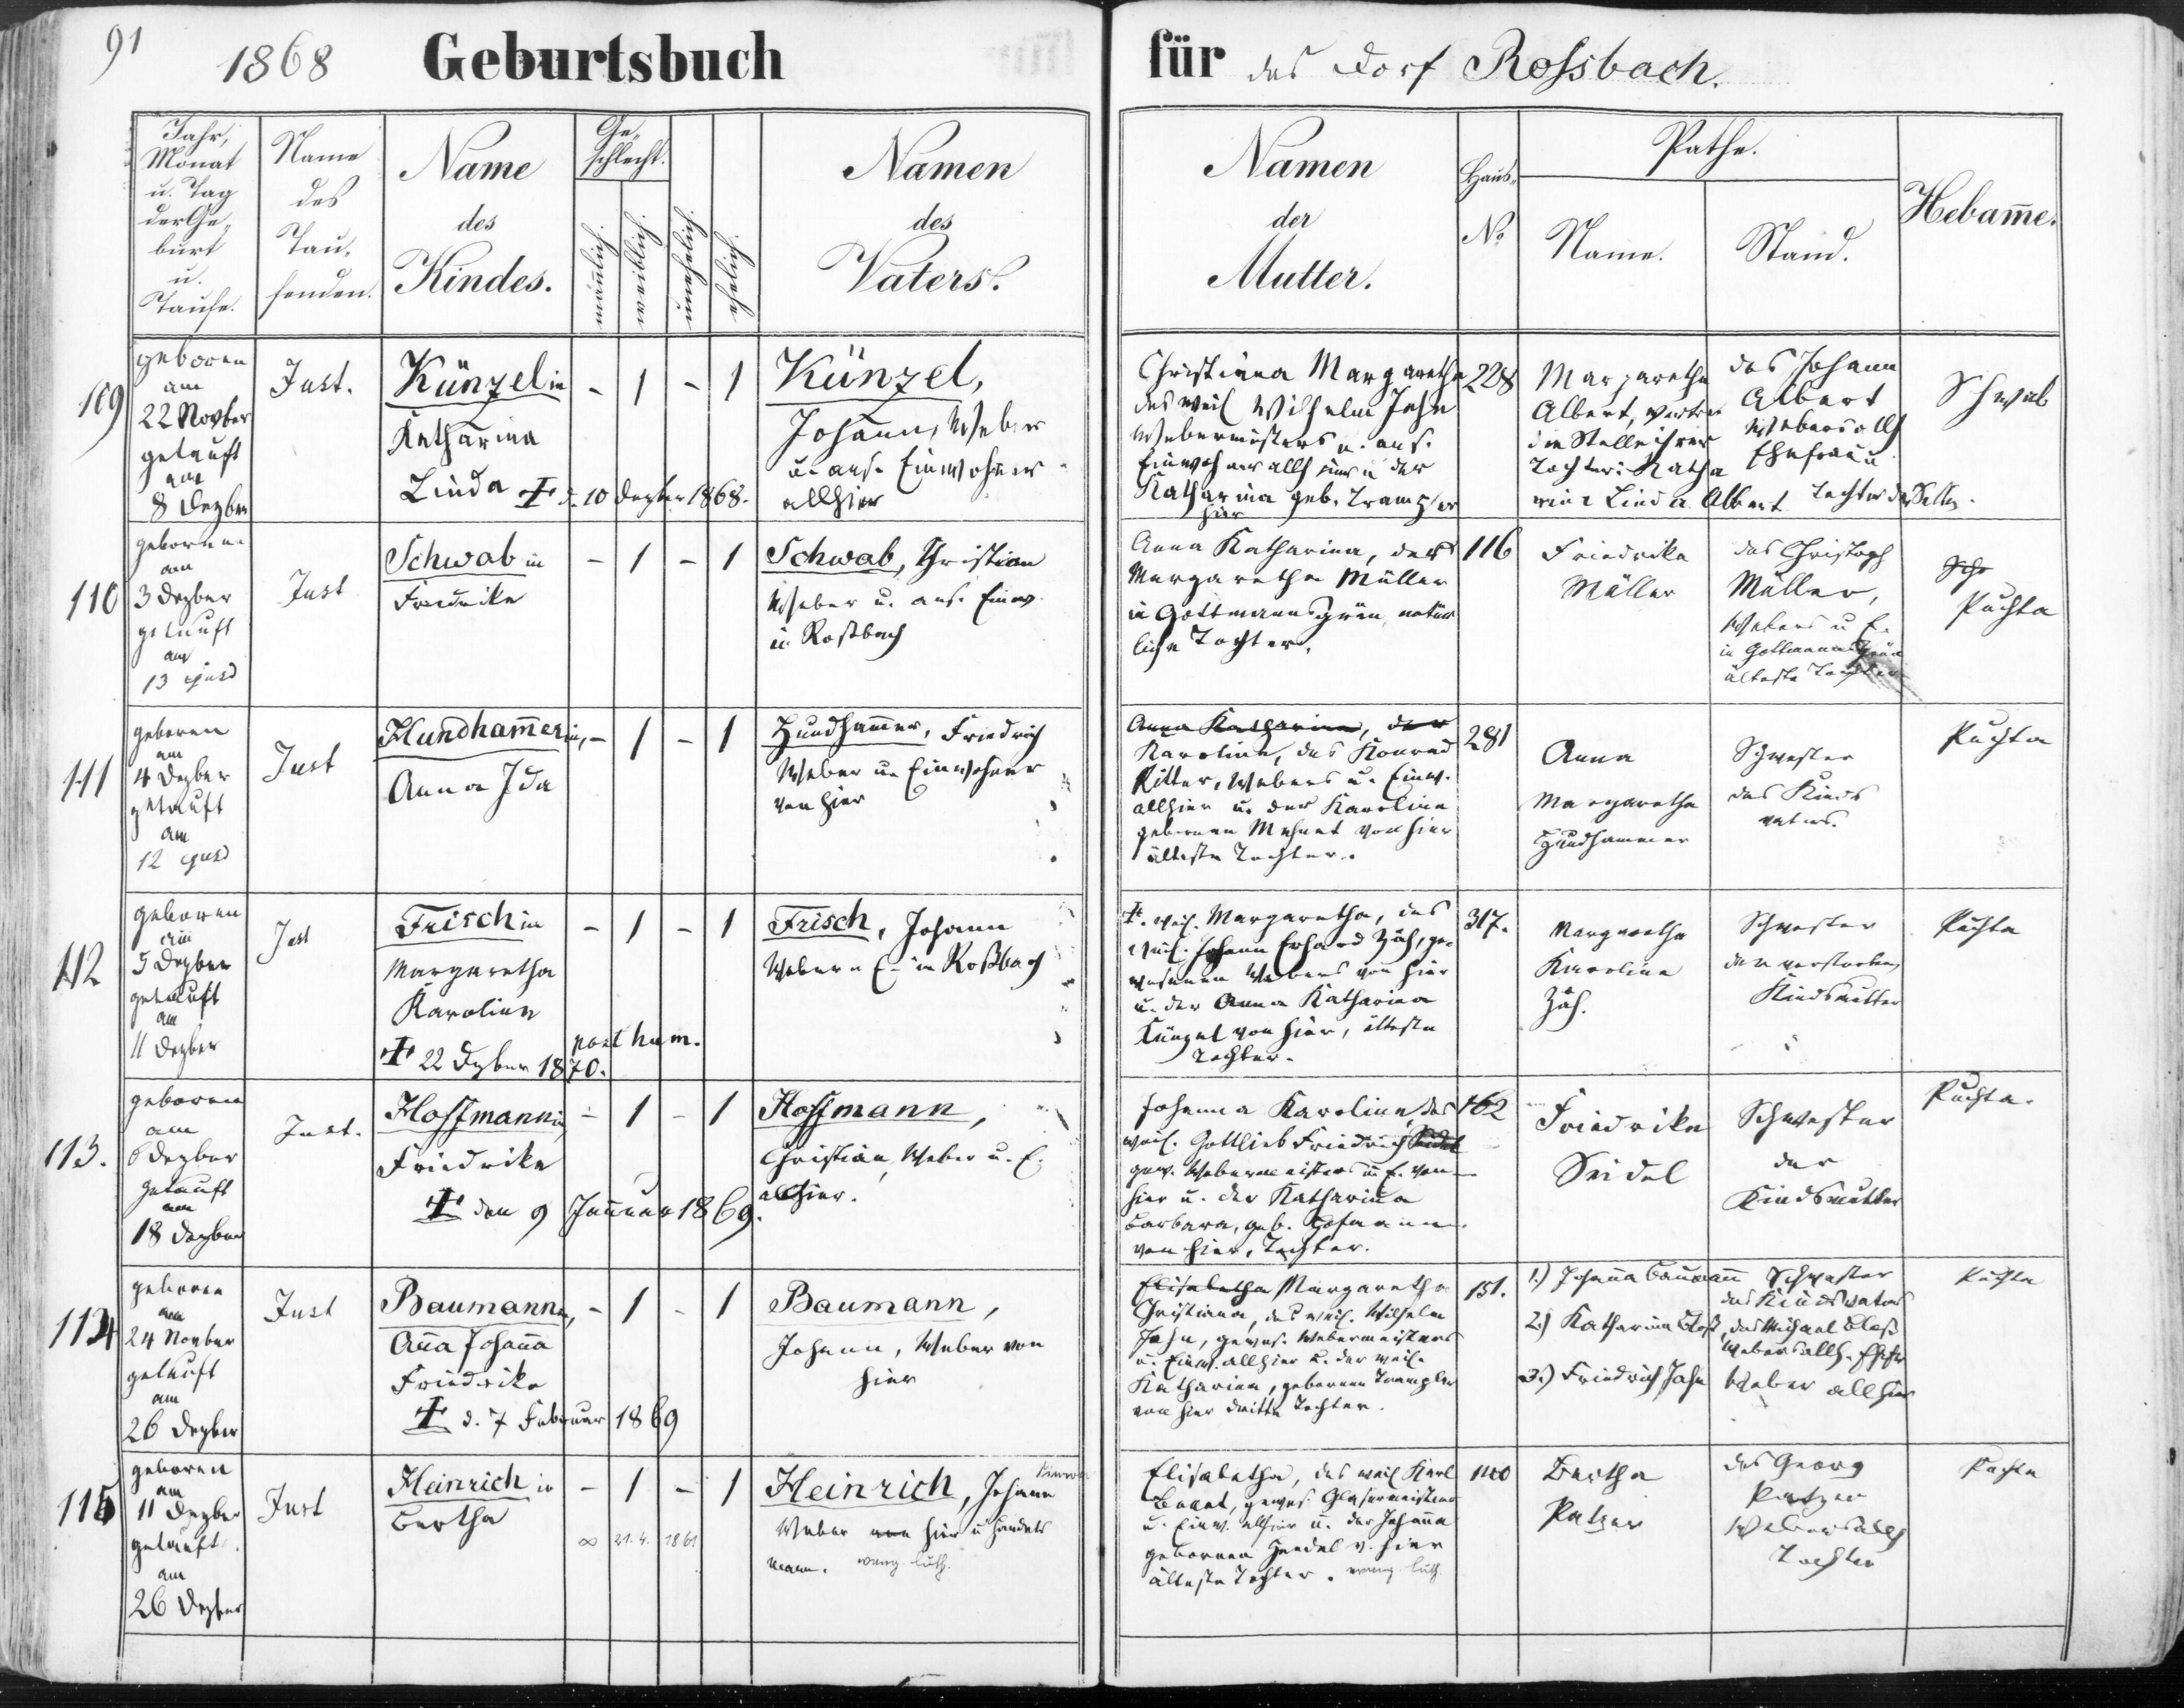 91
1868 Geburtsbuch
für das Dorf Rossbach.
Jahr,
Monat
u. Tag
der Ge-
burt
u.
Taufe.
Name
des
Tau-
fenden.
Name
des
Kindes.
Ge-
schlecht.
männlich.
weiblich.
unehelich.
ehelich.
Namen
des
Vaters.
Namen
der
Mutter.
Haus-
No
Pathe.
Name.
Stand.
Hebam̅e.
109
geboren
am
22 Novber
getauft
am
8 Dezber
Just.
Künzelin
Katharina
Linda ✝ d. 10 Dezber 1868.
- 1 - 1
Künzel,
Johann, Weber
u. ans. Einwohner
allhier
Christiana Margaretha
des weil Wilhelm Jahn
Webermeisters u. ans.
Einwohners allhier u. der
Katharina geb. Trampler
hier
228
Margaretha
Albert, vertrat
die Stelle ihrer
Tochter: Katha
rina Linda Albert
des Johann
Albert
Webers allh
Ehefrau
Tochter ders.
Schwab
110
geboren
am
3 Dezber
getauft
am
13 ejusd
Just
Schwabin
Friedrike
- 1 - 1
Schwab, Christian
Weber u. ans. Einw.
in Roßbach
Anna Katharina, der
Margaretha Müller
in Gottmannsgrün, natür
liche Tochter.
116
Friedrika
Müller
des Christoph
Müller,
Webers u E.
in Gottmannsgrün
älteste Tochter
Puchta
111
geboren
am
4 Dezber
getauft
am
12 ejusd
Just
Hundham̅erin,
Anna Ida
- 1 - 1
Hundham̅er, Friedrich
Weber u. Einwohner
von hier
Anna Katharina, der
Karoline, des Konrad
Ritter, Webers u. Einw.
allhier u. der Karolina
gebornen Mehnert von hier
älteste Tochter.
281
Anna
Margaretha
Hundhammer
Schwester
des Kinds
vaters.
Puchta
112
geboren
am
5 Dezber
getauft
am
11 Dezber
Just
Frischin
Margaretha
Karolina
posthum.
✝ 22 Dzber 1870.
- 1 - 1
Frisch, Johann
Weber u E. in Roßbach
✝. weil. Margaretha, des
weil. Johann Erhard Zäh, ge-
wesenen Webers von hier
u. der Anna Katharina
Künzel von hier, älteste
Tochter.
317.
Margaretha
Karolina
Zäh.
Schwester
der verstorben
Kindsmutter
Puchta
113.
geboren
am
6 Dezber
getauft
am
18 Dezber
Just.
Hoffmannin
Friedrike
✝ den 9 Januar 1869.
- 1 - 1
Hoffmann,
Christian, Weber u. E.
allhier.
Johanna Karolina, des
weil. Gottlieb Friedrich Seidel
gew. Webermeisters u E. von
hier u. der Katharina
Barbara, geb. Hofmann
von hier, Tochter.
162
Friedrike
Seidel
Schwester
der
Kindsmutter
Puchta.
114
geboren
am
24 Novber
getauft
am
26 Dezber
Just
Baumannin,
Anna Johanna
Friedrike
✝ d. 7 Februar 1869
- 1 - 1
Baumann,
Johann, Weber von
hier
Elisabetha Margaretha
Christiana, des weil. Wilhelm
Jahn, gewes. Webermeisters
u. Einw. allhier u. der weil.
Katharina, gebornen Trampler
von hier dritte Tochter.
151.
1.) Johanna Baumann
2.) Katharina Ploß
3.) Friedrich Jahn
Schwester
des Kindsvaters
des Michael Ploß
Webers allh. Ehefr
Weber allhier
Puchta
115
geboren
am
11 Dezber
getauft
am
26 Dezber
Just
Heinrich in
Bertha
∞ 21. 4. 1861
- 1 - 1
Heinrich, Johann
Weber von hier u Handels
mann. evang. luth.
Elisabetha, des weil Karl
gewes. Glasermeisters
u. Einw. allhier u. der Johanna
gebornen Hendel v. hier
älteste Tochter. evang. luth.
Bertha
Patzer
des Georg
Patzer
Webers allh
Tochter
Puchta